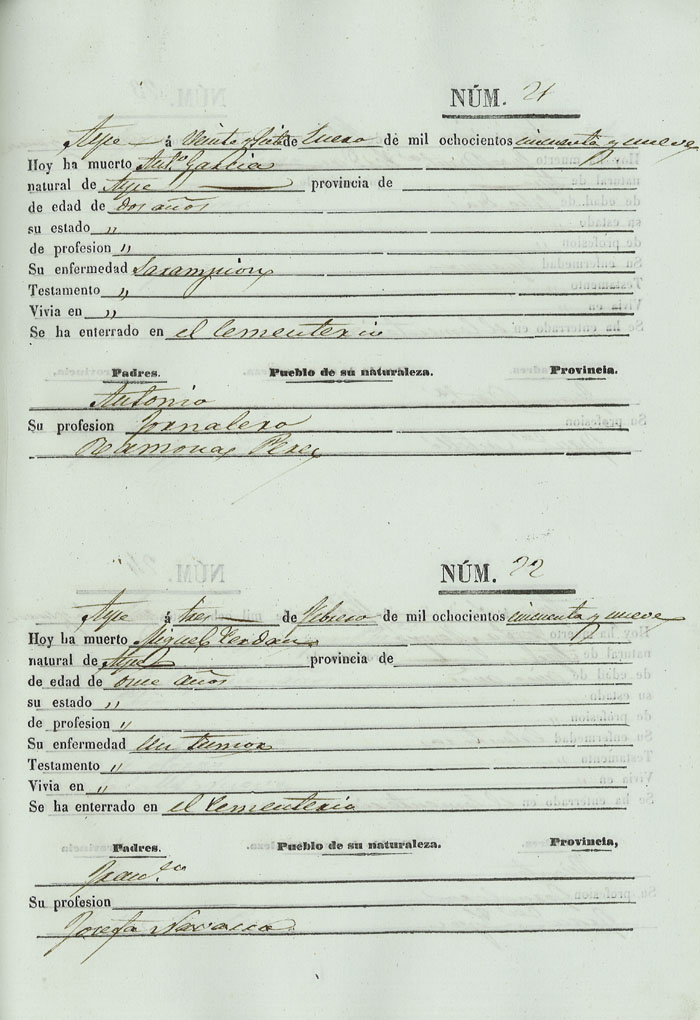 NÚM. 21
Aspe á Veinte y siete de Enero de mil ochocientos cincuenta y nueve
Hoy ha muerto Ant.º Garcia
natural de Aspe provincia de
de edad de dos años
su estado "
de profesion "
Su enfermedad Sarampion
Testamento "
Vivia en "
Se ha enterrado en el Cementerio
Padres. Pueblo de su naturaleza. Provincia.
Antonio
Su profesion Jornalero
Ramona Perez
NÚM. 22
Aspe á tres de Febrero de mil ochocientos cincuenta y nueve
Hoy ha muerto Miguel Cerdán
natural de Aspe provincia de
de edad de once años
su estado "
de profesion "
Su enfermedad Un tumor
Testamento "
Vivia en "
Se ha enterrado en el Cementerio
Padres. Pueblo de su naturaleza. Provincia,
Fran.co
Su profesion
Josefa Navarro